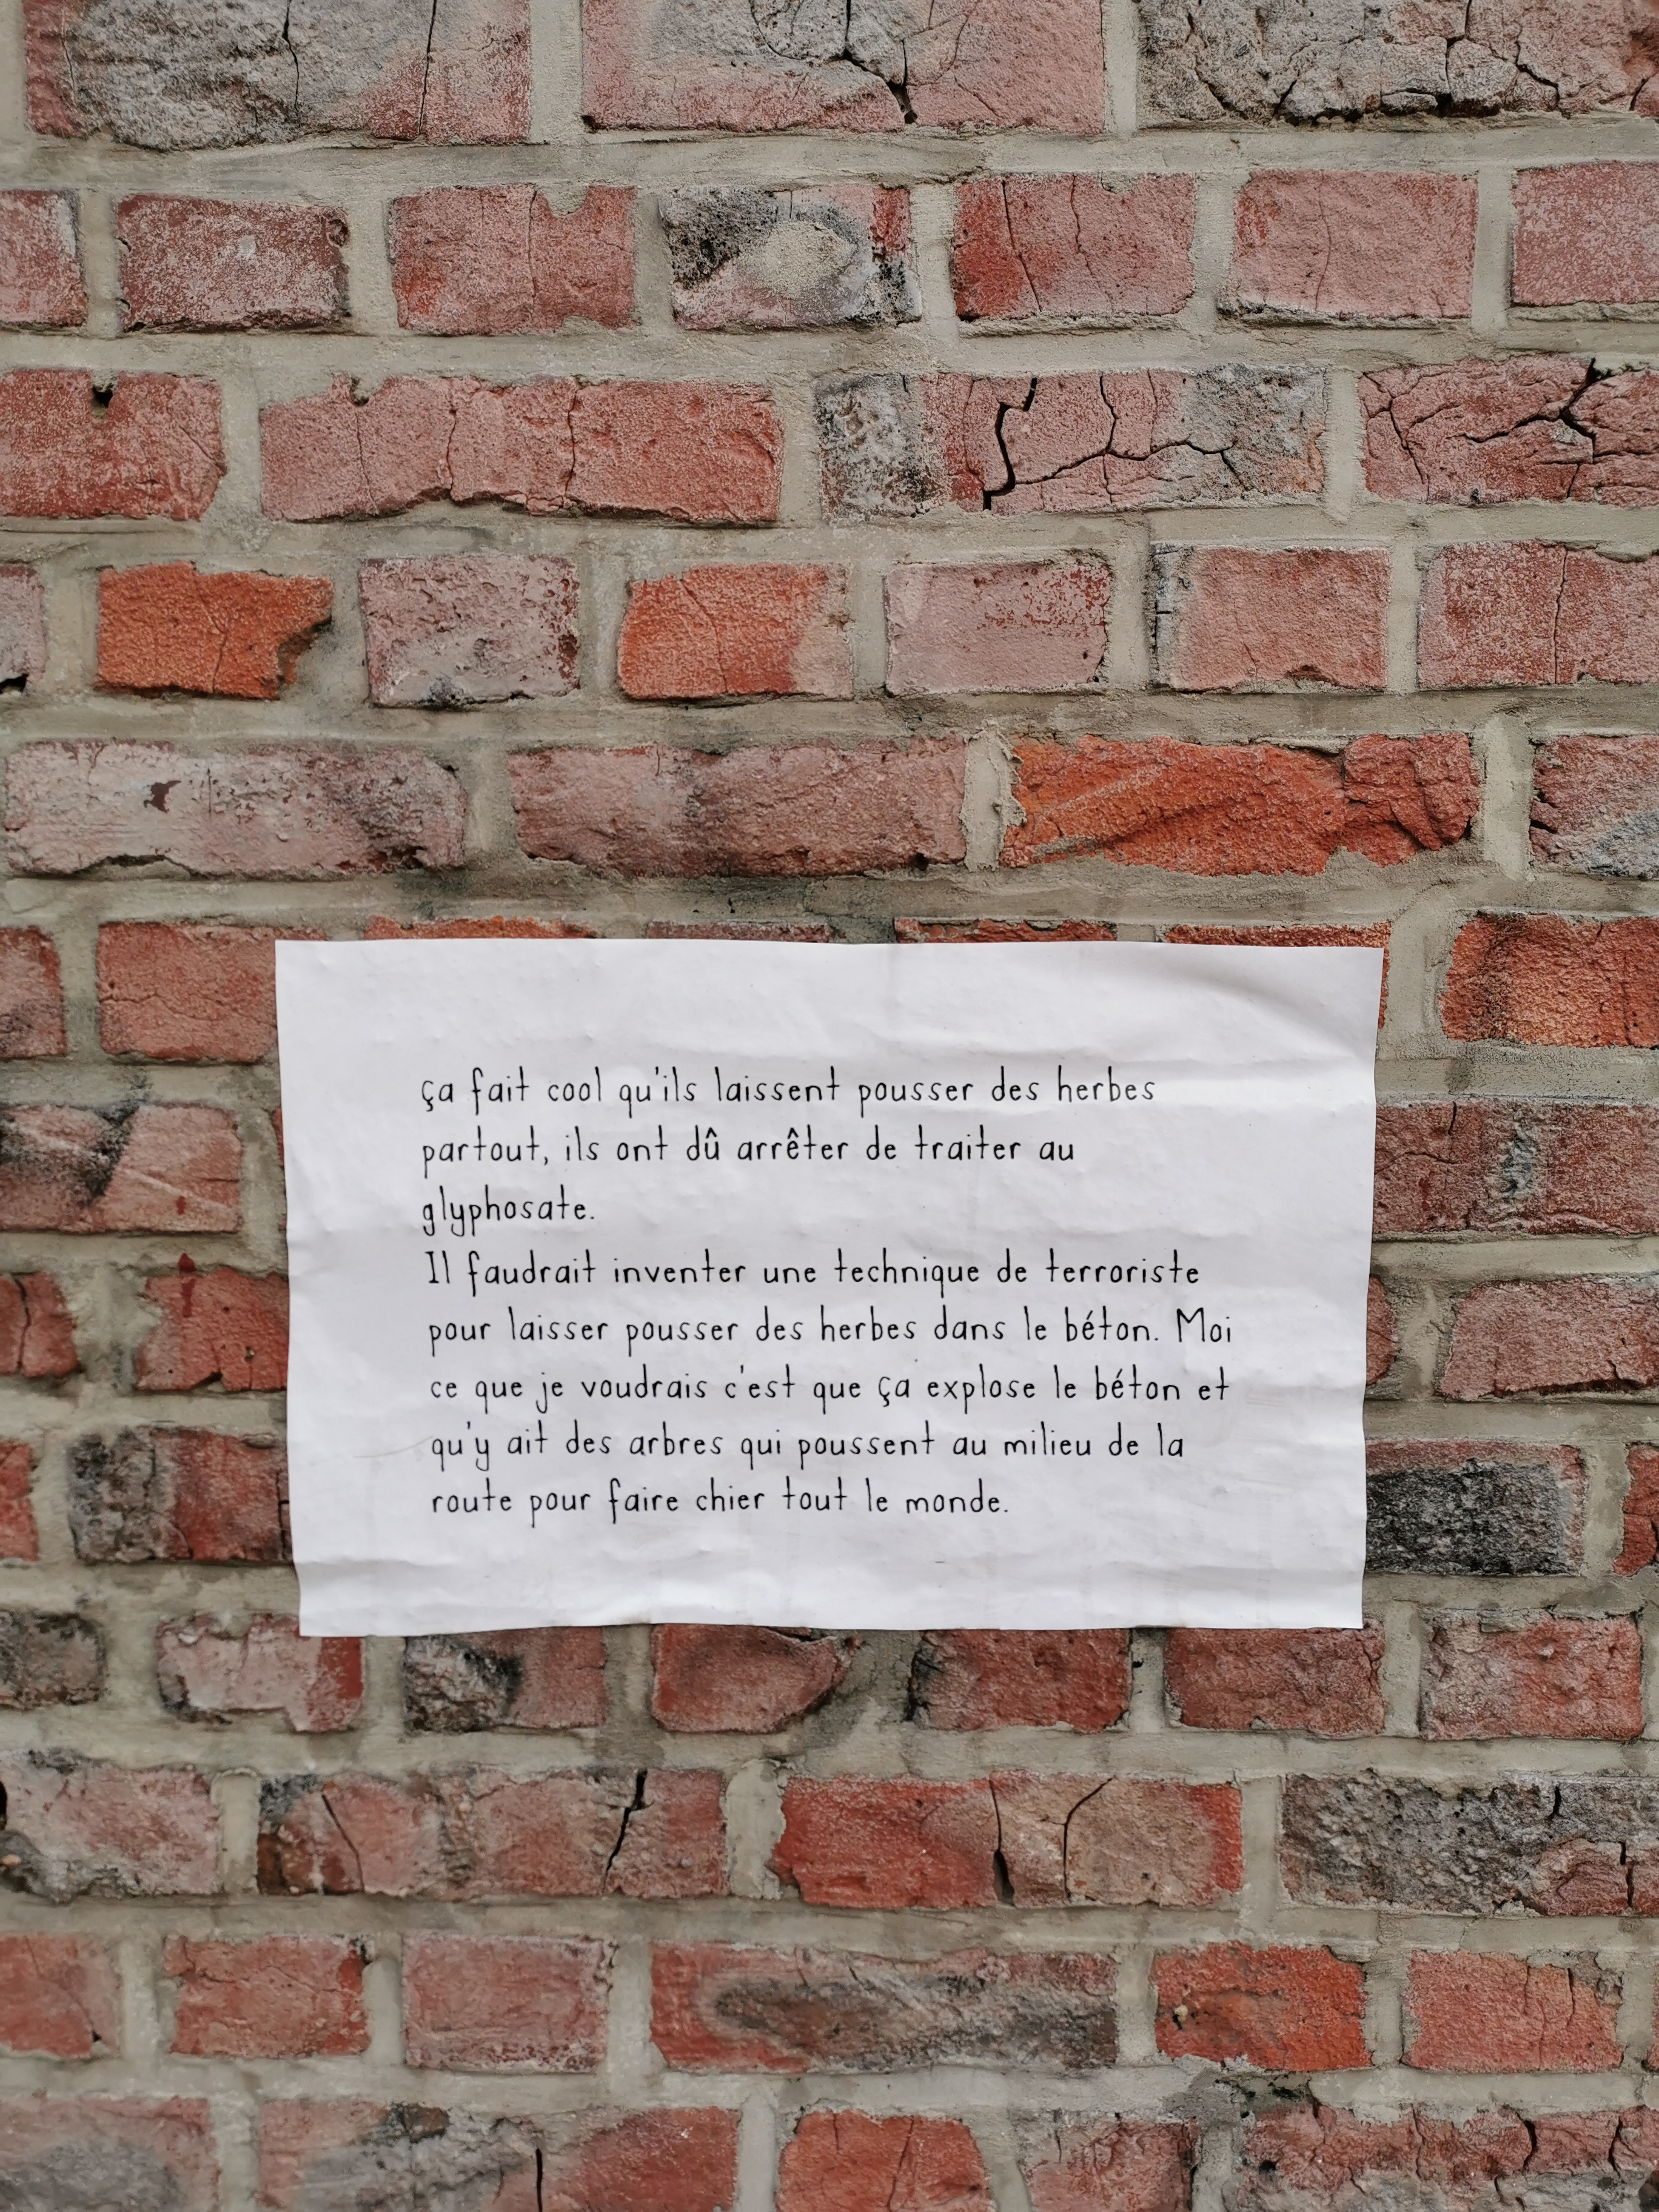 ça fait cool qu'ils laissent pousser des herbes
partout, ils ont dû arrêter de traiter au
glyphosate.
Il faudrait inventer une technique de terroriste
pour laisser pousser des herbes dans le béton. Moi
ce que je voudrais c'est que ça explose le béton et
qu'y ait des arbres qui poussent au milieu de la
route pour faire chier tout le monde.